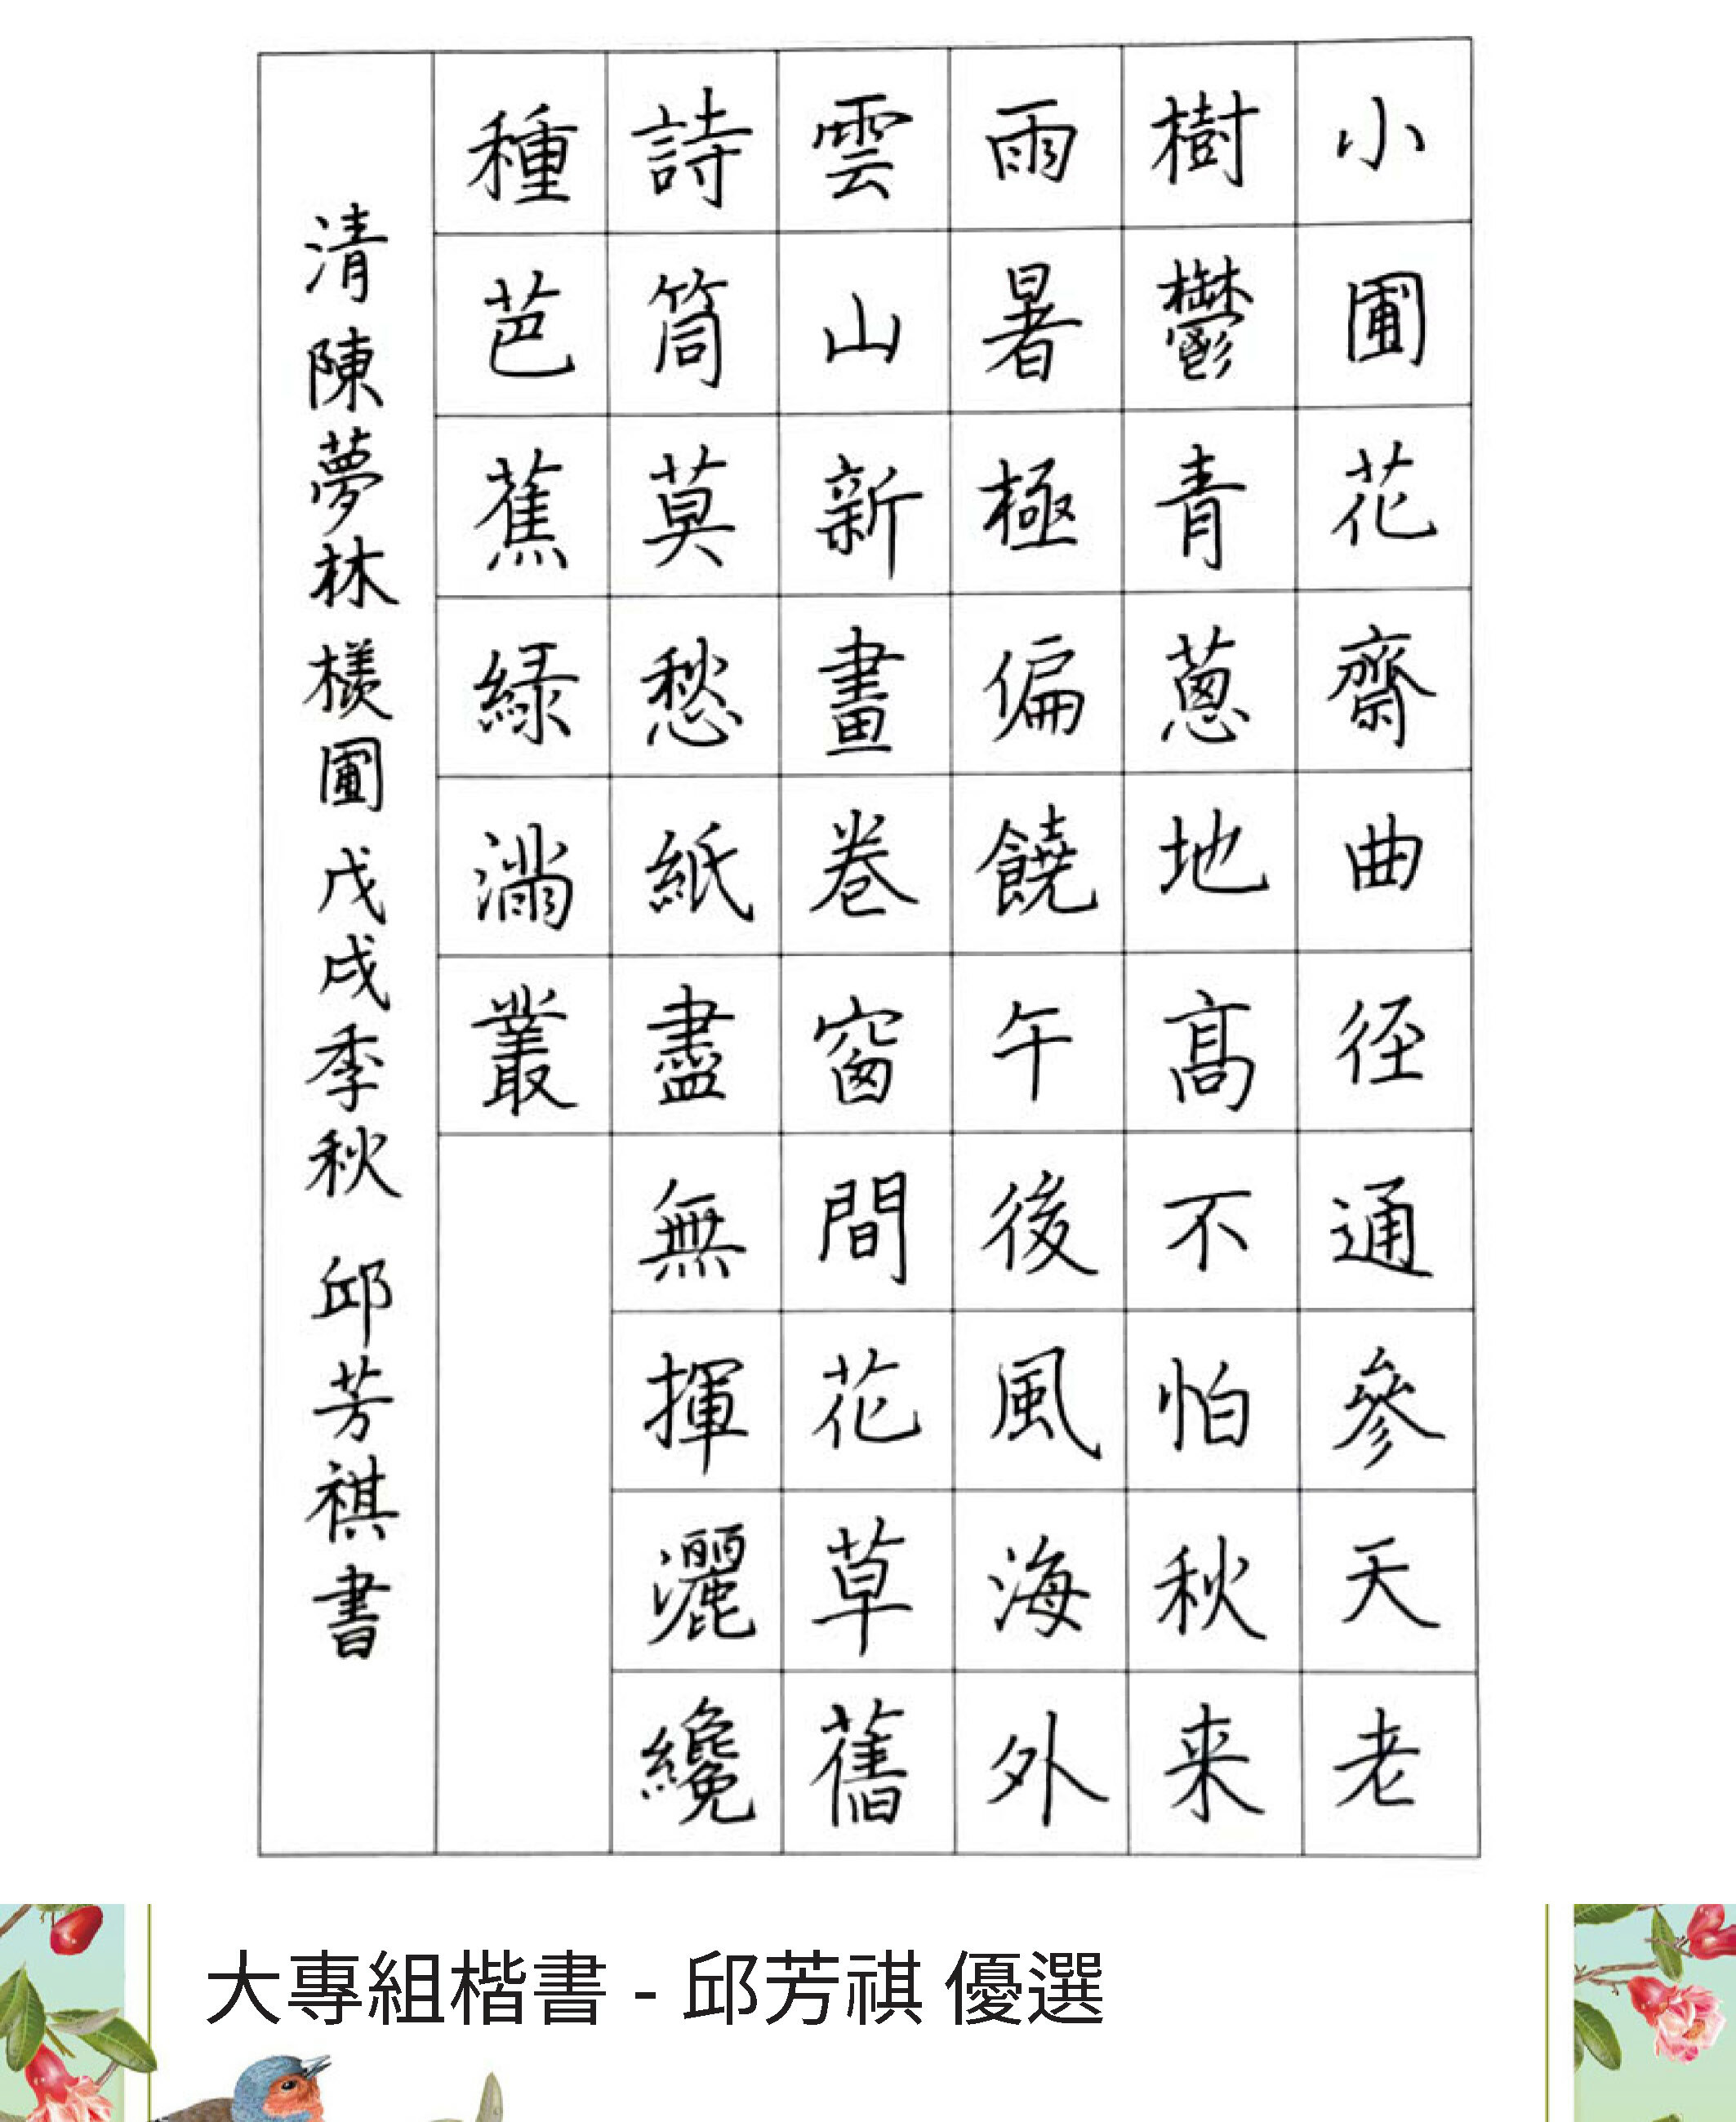 小圃花齋曲径通參天老
樹鬱青蔥地高不怕秋来
雨暑極偏饒午後風海外
雲山新畫卷窗間花草舊
詩筒莫愁紙盡無揮灑纔
種芭蕉緑滿叢
清陳夢林檨圃戊戌季秋 邱芳祺書
大專組楷書 - 邱芳祺 優選